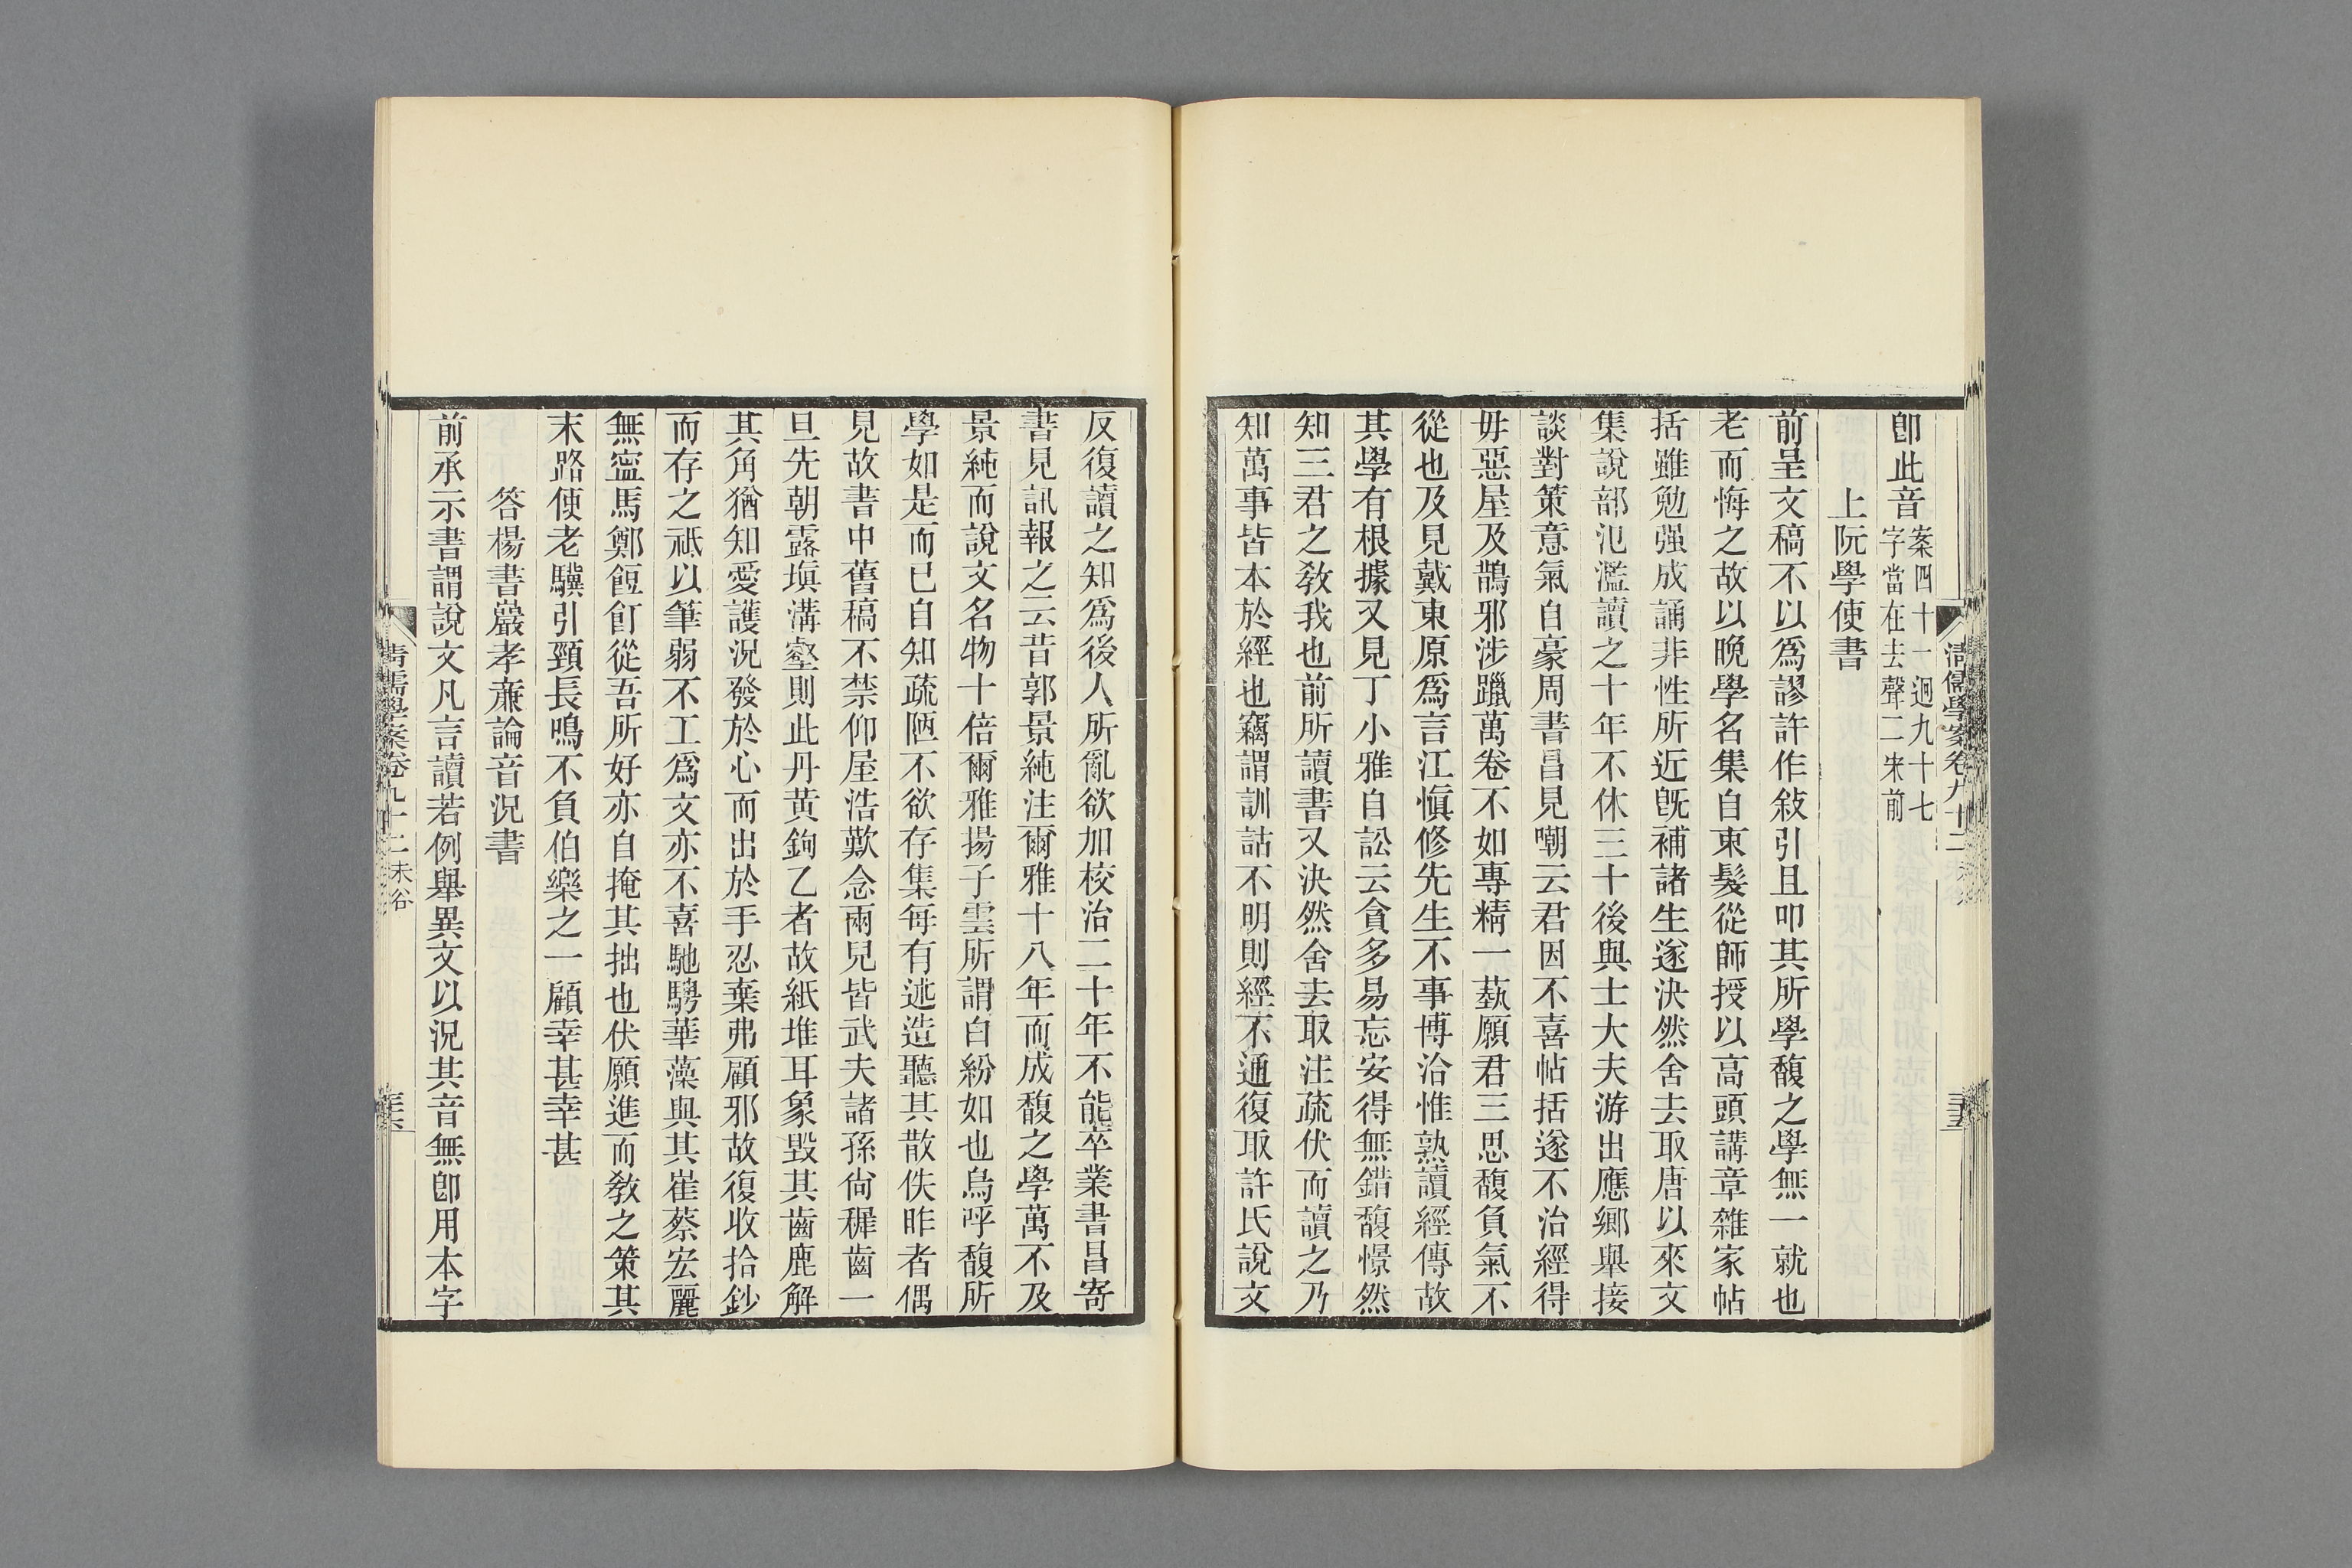 卽此音案四十一迥九十七
字當在去聲二宋前
上阮學使書
前呈文稿不以爲謬許作敍引且叩其所學馥之學無一就也
老而悔之故以晚學名集自束髮從師授以高頭講章雜家帖
括雖勉强成誦非性所近旣補諸生遂決然舍去取唐以來文
集說部氾濫讀之十年不休三十後與士大夫游出應鄉舉接
談對策意氣自豪周書昌見嘲云君因不喜帖括遂不治經得
毋惡屋及鵲邪涉躐萬卷不如專精一蓺願君三思馥負氣不
從也及見戴東原爲言江愼修先生不事博洽惟熟讀經傳故
其學有根據又見丁小雅自訟云貪多易忘安得無錯馥憬然
知三君之敎我也前所讀書又決然舍去取注疏伏而讀之乃
知萬事皆本於經也竊謂訓詁不明則經不通復取許氏說文
清儒學案卷九十二
反復讀之知爲後人所亂欲加校治二十年不能卒業書昌寄
書見訊報之云昔郭景純注爾雅十八年而成馥之學萬不及
景純而說文名物十倍爾雅揚子雲所謂白紛如也烏呼馥所
學如是而已自知疏陋不欲存集每有述造聽其散佚昨者偶
見故書中舊稿不禁仰屋浩歎念兩兒皆武夫諸孫尙穉齒一
旦先朝露塡溝壑則此丹黃鉤乙者故紙堆耳象毀其齒鹿解
其角猶知愛護況發於心而出於手忍棄弗顧邪故復收拾鈔
而存之祗以筆弱不工爲文亦不喜馳騁華藻與其崔蔡宏麗
無寍馬鄭餖飣從吾所好亦自掩其拙也伏願進而敎之策其
末路使老驥引頸長鳴不負伯樂之一顧幸甚幸甚
答楊書巖孝廉論音況書
前承示書謂說文凡言讀若例舉異文以況其音無卽用本字
清儒學案卷九十二 未谷